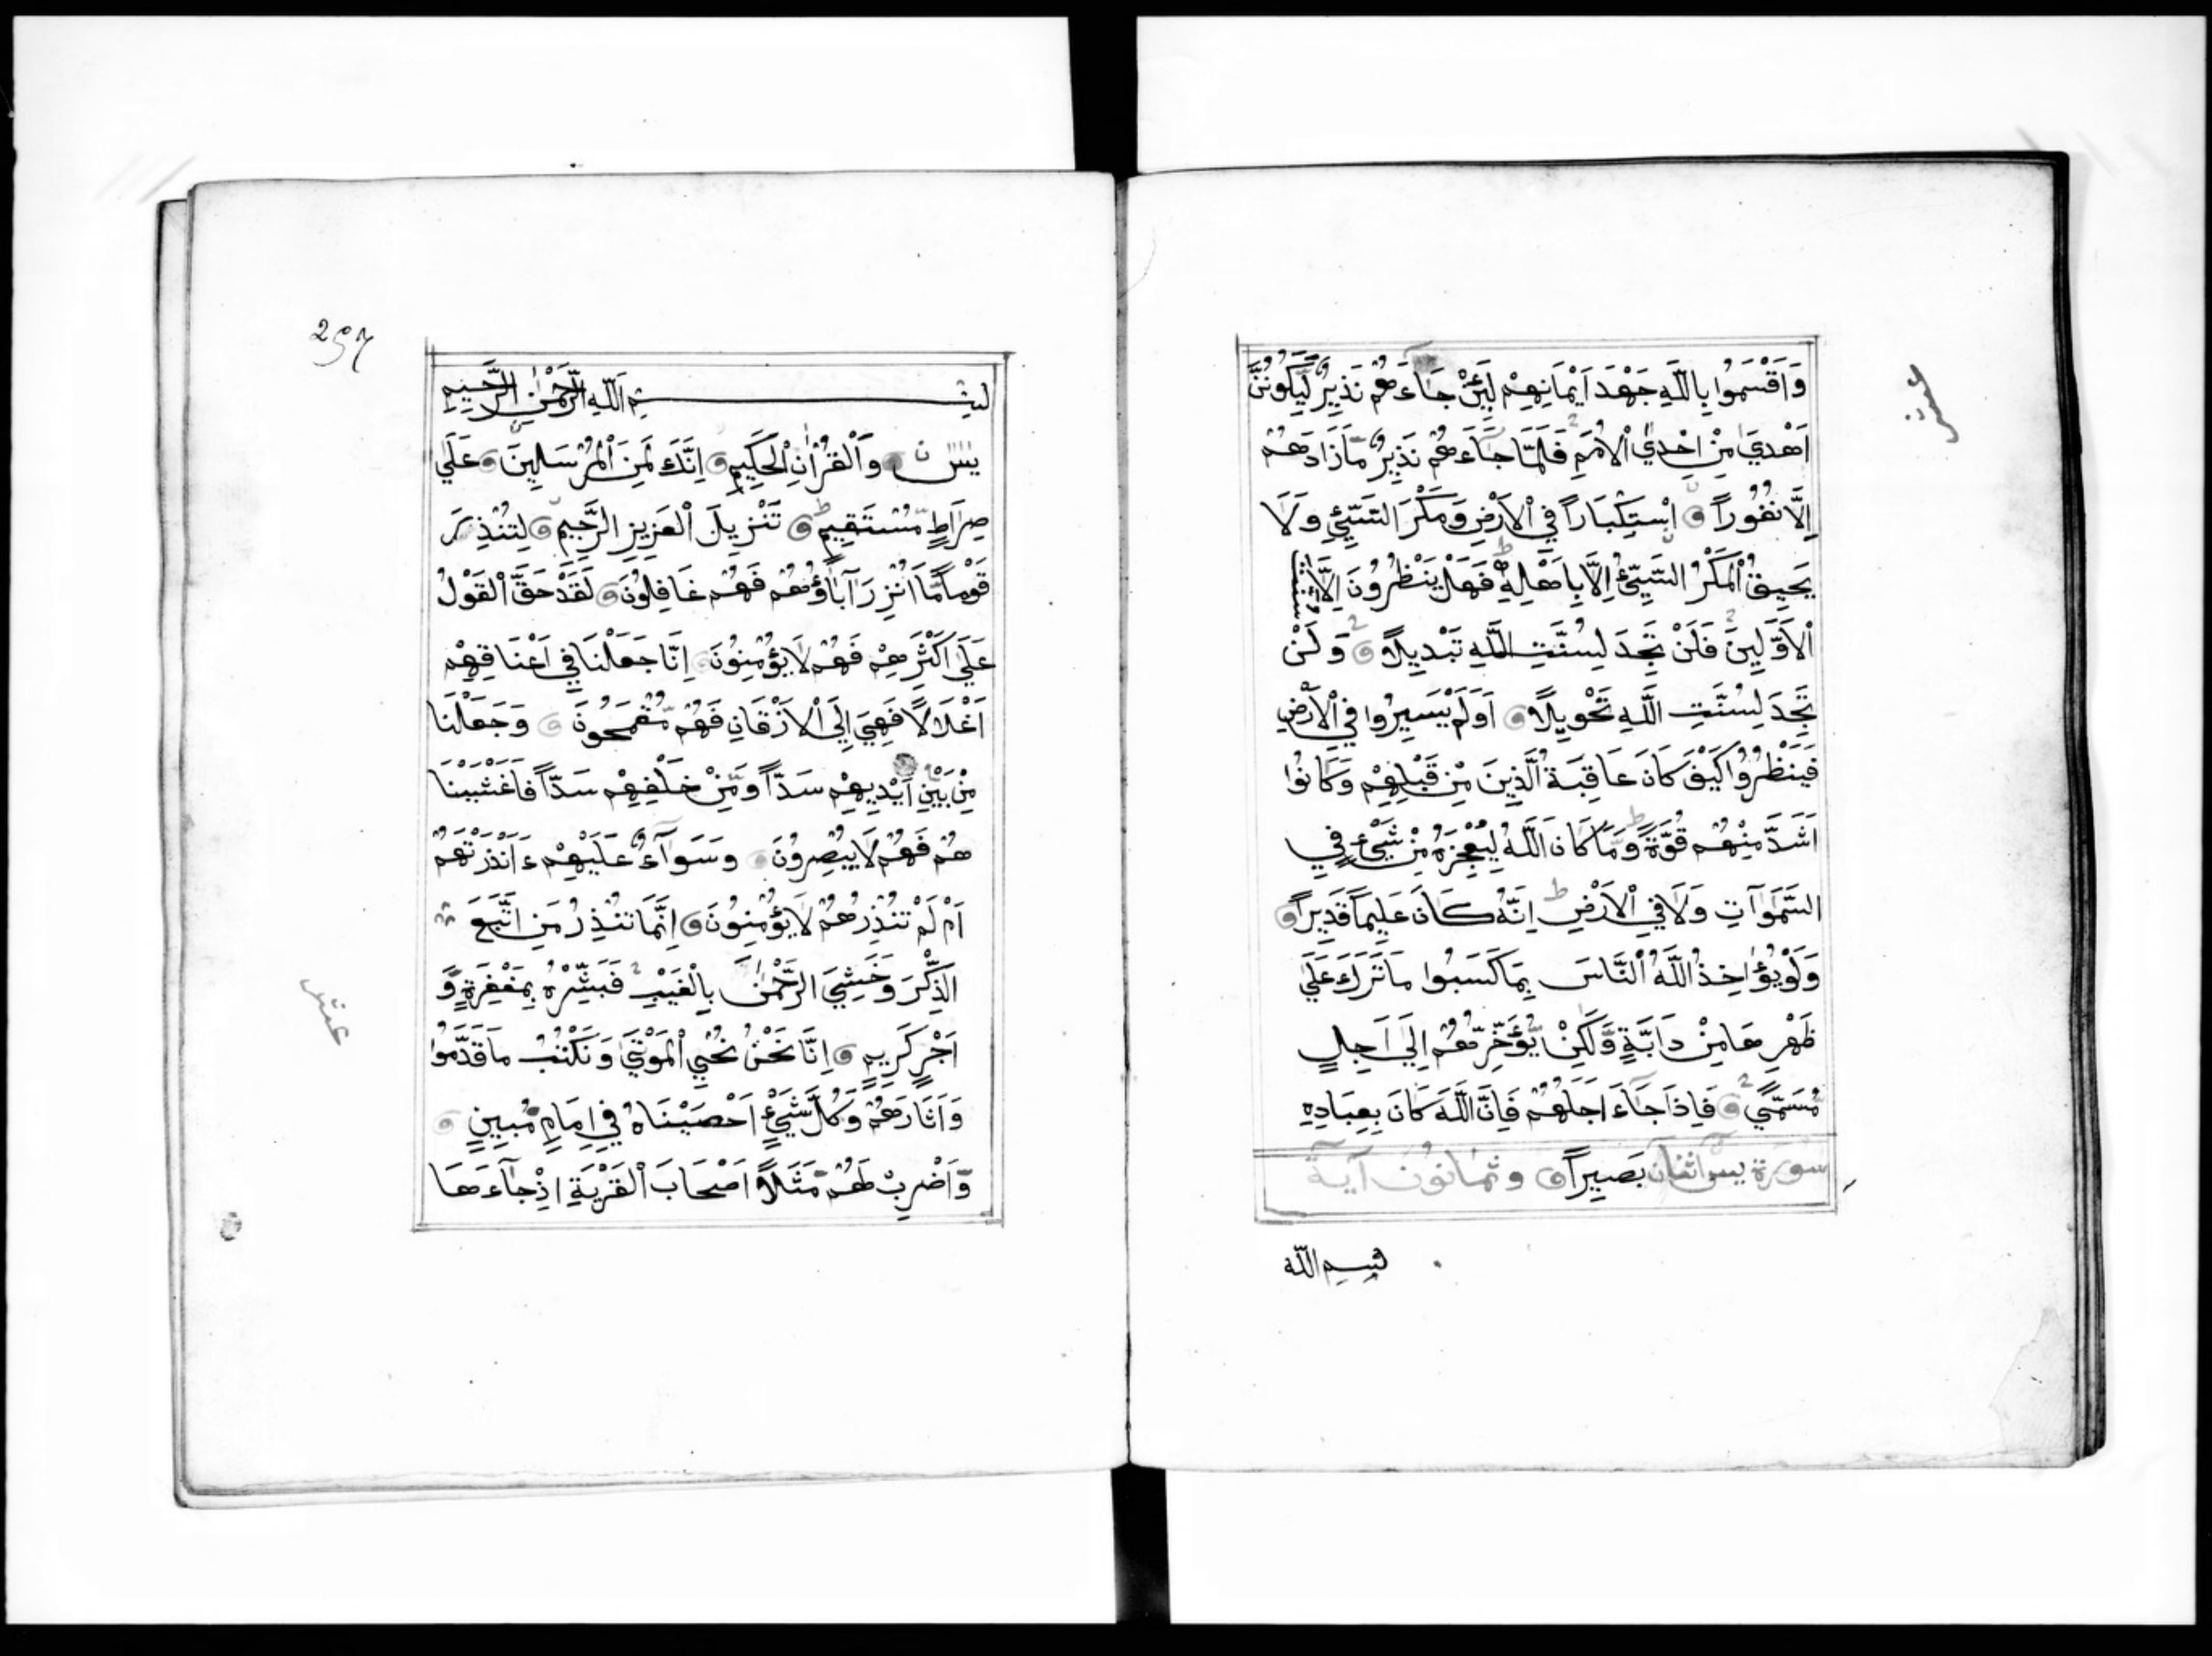 وَاَقْسَمُوا بِاللّٰهِ جَهْدَ اَيْمَانِهِمْ لَئِنْ جَاءَهُمْ نَذِيرٌ لَيَكُونُنَّ
اَهْدَى مِنْ اِحْدَى الْاُمَمِ فَلَمَّا جَاءَهُمْ نَذِيرٌ مَازَادَهُمْ
اِلَّا نُفُورًا اسْتِكْبَارًا فِي الْاَرْضِ وَمَكْرَ السَّيِّئِ وَلَا
يَحِيقُ الْمَكْرُ السَّيِّئُ اِلَّا بِاَهْلِهِ فَهَلْ يَنْظُرُونَ اِلَّا سُنَّتَ
الْاَوَّلِينَ فَلَنْ تَجِدَ لِسُنَّتِ اللّٰهِ تَبْدِيلًا وَلَنْ
تَجِدَ لِسُنَّتِ اللّٰهِ تَحْوِيلًا اَوَلَمْ يَسِيرُوا فِي الْاَرْضِ
فَيَنْظُرُوا كَيْفَ كَانَ عَاقِبَةُ الَّذِينَ مِنْ قَبْلِهِمْ وَكَانُوا
اَشَدَّ مِنْهُمْ قُوَّةً وَمَا كَانَ اللّٰهُ لِيُعْجِزَهُ مِنْ شَيْءٍ فِي
السَّمٰوَاتِ وَلَا فِي الْاَرْضِ اِنَّهُ كَانَ عَلِيمًا قَدِيرًا
وَلَوْ يُؤَاخِذُ اللّٰهُ النَّاسَ بِمَا كَسَبُوا مَا تَرَكَ عَلَى
ظَهْرِهَا مِنْ دَابَّةٍ وَلٰكِنْ يُؤَخِّرُهُمْ اِلَى اَجَلٍ
مُسَمًّى فَاِذَا جَاءَ اَجَلُهُمْ فَاِنَّ اللّٰهَ كَانَ بِعِبَادِهِ
سورة يس اثنان بَصِيرًا وثمانون آية
بسم الله
297
بِسْمِ اللّٰهِ الرَّحْمٰنِ الرَّحِيمِ
يٰسٓ وَالْقُرْاٰنِ الْحَكِيمِ اِنَّكَ لَمِنَ الْمُرْسَلِينَ عَلَى
صِرَاطٍ مُسْتَقِيمٍ تَنْزِيلَ الْعَزِيزِ الرَّحِيمِ لِتُنْذِرَ
قَوْمًا مَا اُنْذِرَ آبَاؤُهُمْ فَهُمْ غَافِلُونَ لَقَدْ حَقَّ الْقَوْلُ
عَلَى اَكْثَرِهِمْ فَهُمْ لَا يُؤْمِنُونَ اِنَّا جَعَلْنَا فِي اَعْنَاقِهِمْ
اَغْلَالًا فَهِيَ اِلَى الْاَذْقَانِ فَهُمْ مُقْمَحُونَ وَجَعَلْنَا
مِنْ بَيْنِ اَيْدِيهِمْ سَدًّا وَمِنْ خَلْفِهِمْ سَدًّا فَاَغْشَيْنَا
هُمْ فَهُمْ لَا يُبْصِرُونَ وَسَوَآءٌ عَلَيْهِمْ ءَاَنْذَرْتَهُمْ
اَمْ لَمْ تُنْذِرْهُمْ لَا يُؤْمِنُونَ اِنَّمَا تُنْذِرُ مَنِ اتَّبَعَ
الذِّكْرَ وَخَشِيَ الرَّحْمٰنَ بِالْغَيْبِ فَبَشِّرْهُ بِمَغْفِرَةٍ وَ
اَجْرٍ كَرِيمٍ اِنَّا نَحْنُ نُحْيِ الْمَوْتَى وَنَكْتُبُ مَا قَدَّمُوا
وَاٰثَارَهُمْ وَكُلَّ شَيْءٍ اَحْصَيْنَاهُ فِي اِمَامٍ مُبِينٍ
وَاضْرِبْ لَهُمْ مَثَلًا اَصْحَابَ الْقَرْيَةِ اِذْ جَآءَهَا